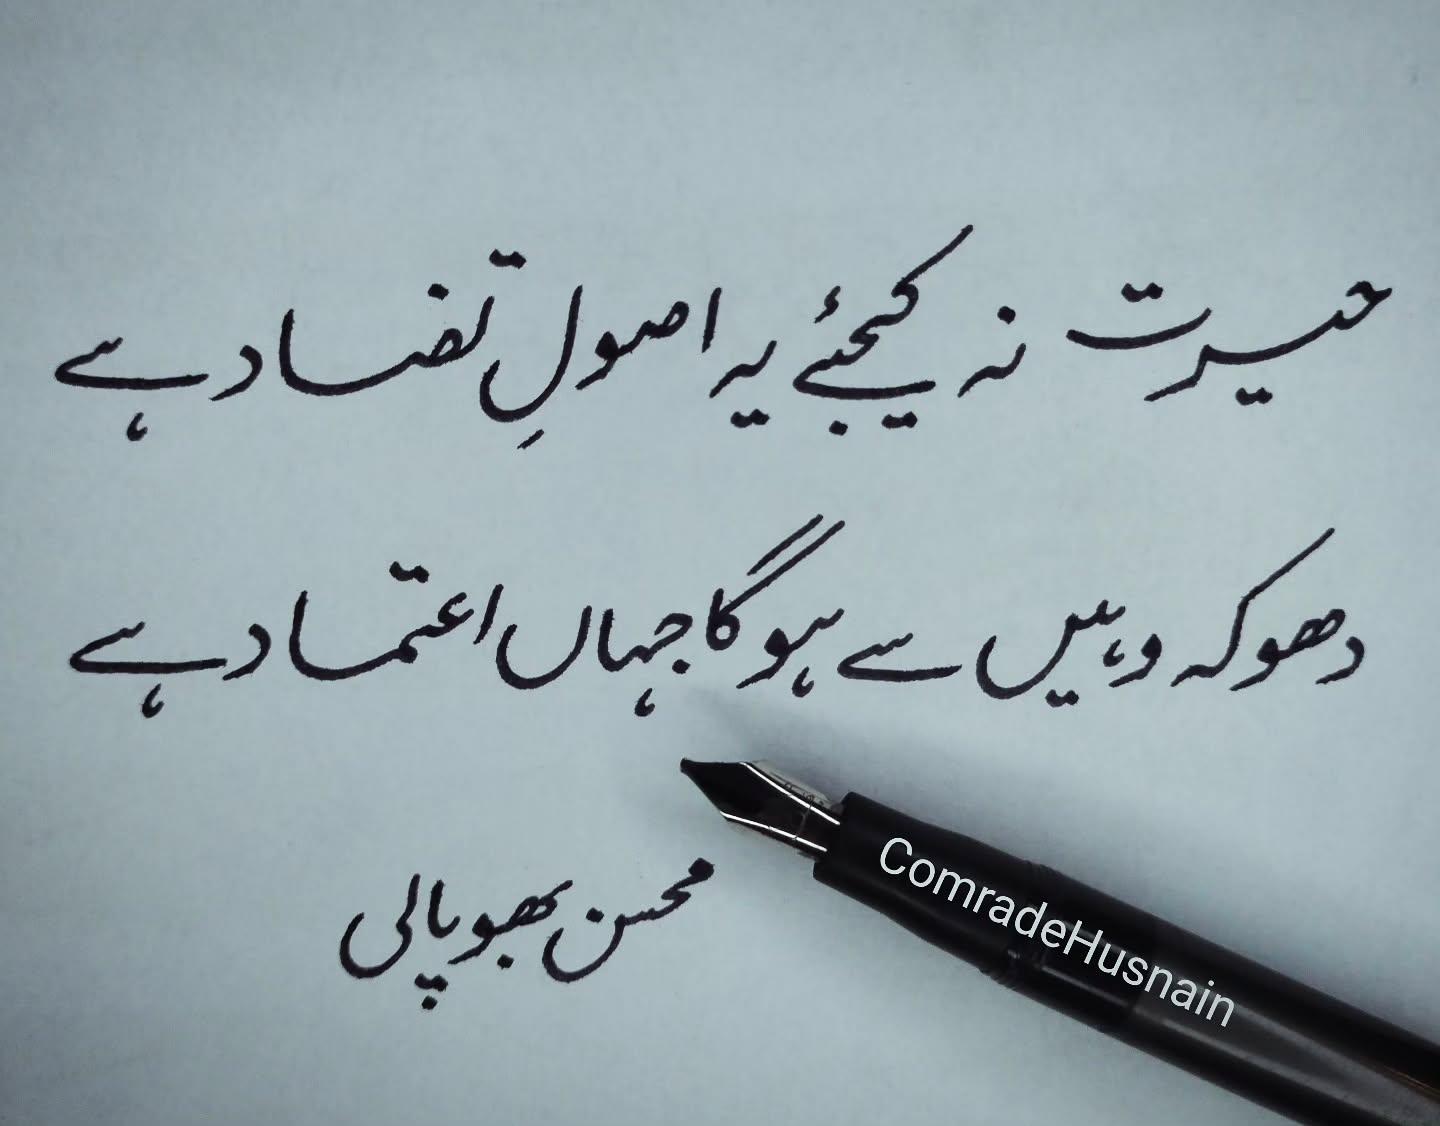 حیرت نہ کیجئے یہ اصولِ تضاد ہے
دھوکہ وہیں سے ہوگا جہاں اعتماد ہے
محسن بھوپالی
ComradeHusnain